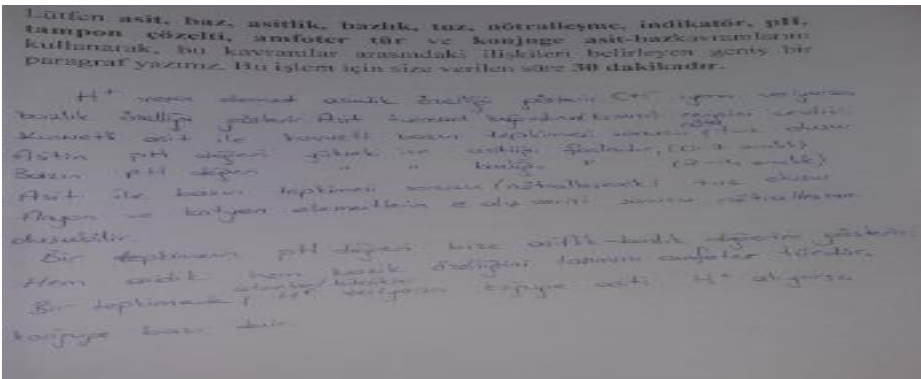 Lütfen asit, baz, asitlik, bazlık, tuz, nötralleşme, indikatör, pH,
tampon çözelti, amfoter tür ve konjuge asit-bazkavramlarını
kullanarak, bu kavramlar arasındaki ilişkileri belirleyen geniş bir
paragraf yazınız. Bu işlem için size verilen süre 30 dakikadır.
H+ veren element asidik özelliği gösterir. OH- iyonu veriyorsa
bazlık özelliği gösterir. Asit
Kuvvetli asit ile kuvvetli bazın tepkimesi sonucu tuz oluşur
Asitin pH değeri yüksek ise asitliği fazladır,
Bazın pH değeri " " bazlığı "
Asit ile bazın tepkimesi sonucu (nötralleşerek) tuz oluşur
Anyon ve katyon elementlerin e alış verişi sonucu nötralleşme
oluşabilir.
Bir tepkimenin pH değeri bize asitlik-bazlık değerini gösterir.
Hem asidik hem bazik özelliğini taşıyan amfoter türdür.
Bir tepkimede H+ veriyorsa konjuge asiti H+ alıyorsa
konjuge bazı denir.